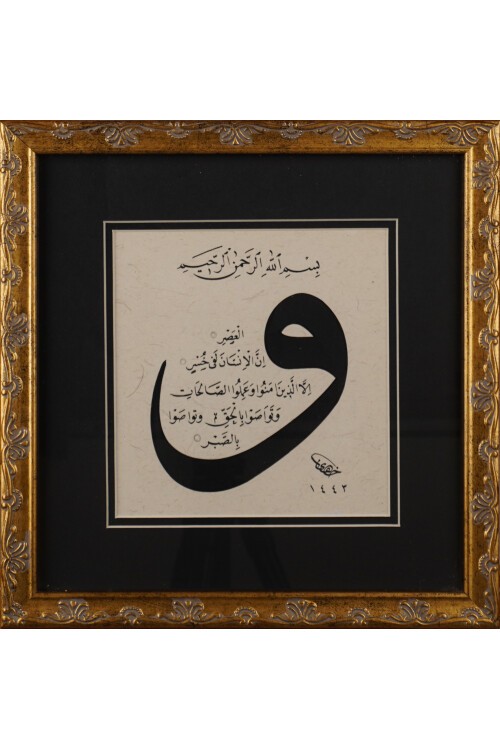 بسم الله الرحمن الرحيم
و
العصر
ان الانسان لفى خسر
الا الذين امنوا وعملوا الصالحات
وتواصوا بالحق وتواصوا
بالصبر
١٤٤٣